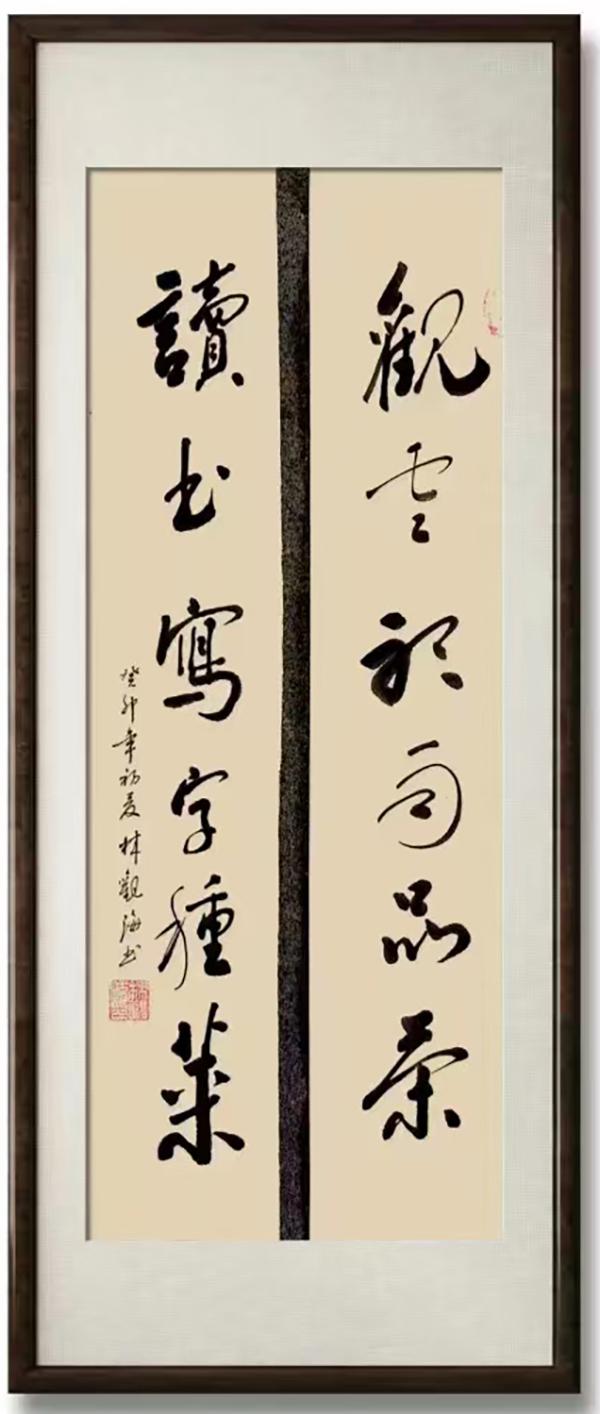 觀雲聽雨品茶
讀書寫字種菜
癸卯年初夏林觀海書